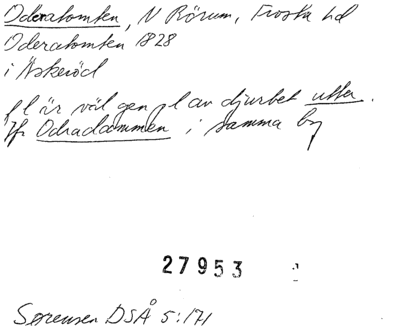 Oderatomten, N Rörum, Frosta hd
Oderatomten 1828
i Äskeröd
fl är väl gen pl av djurbet utter.
Jfr Odradammen i samma by
27953
Sørensen DSÅ 5:171